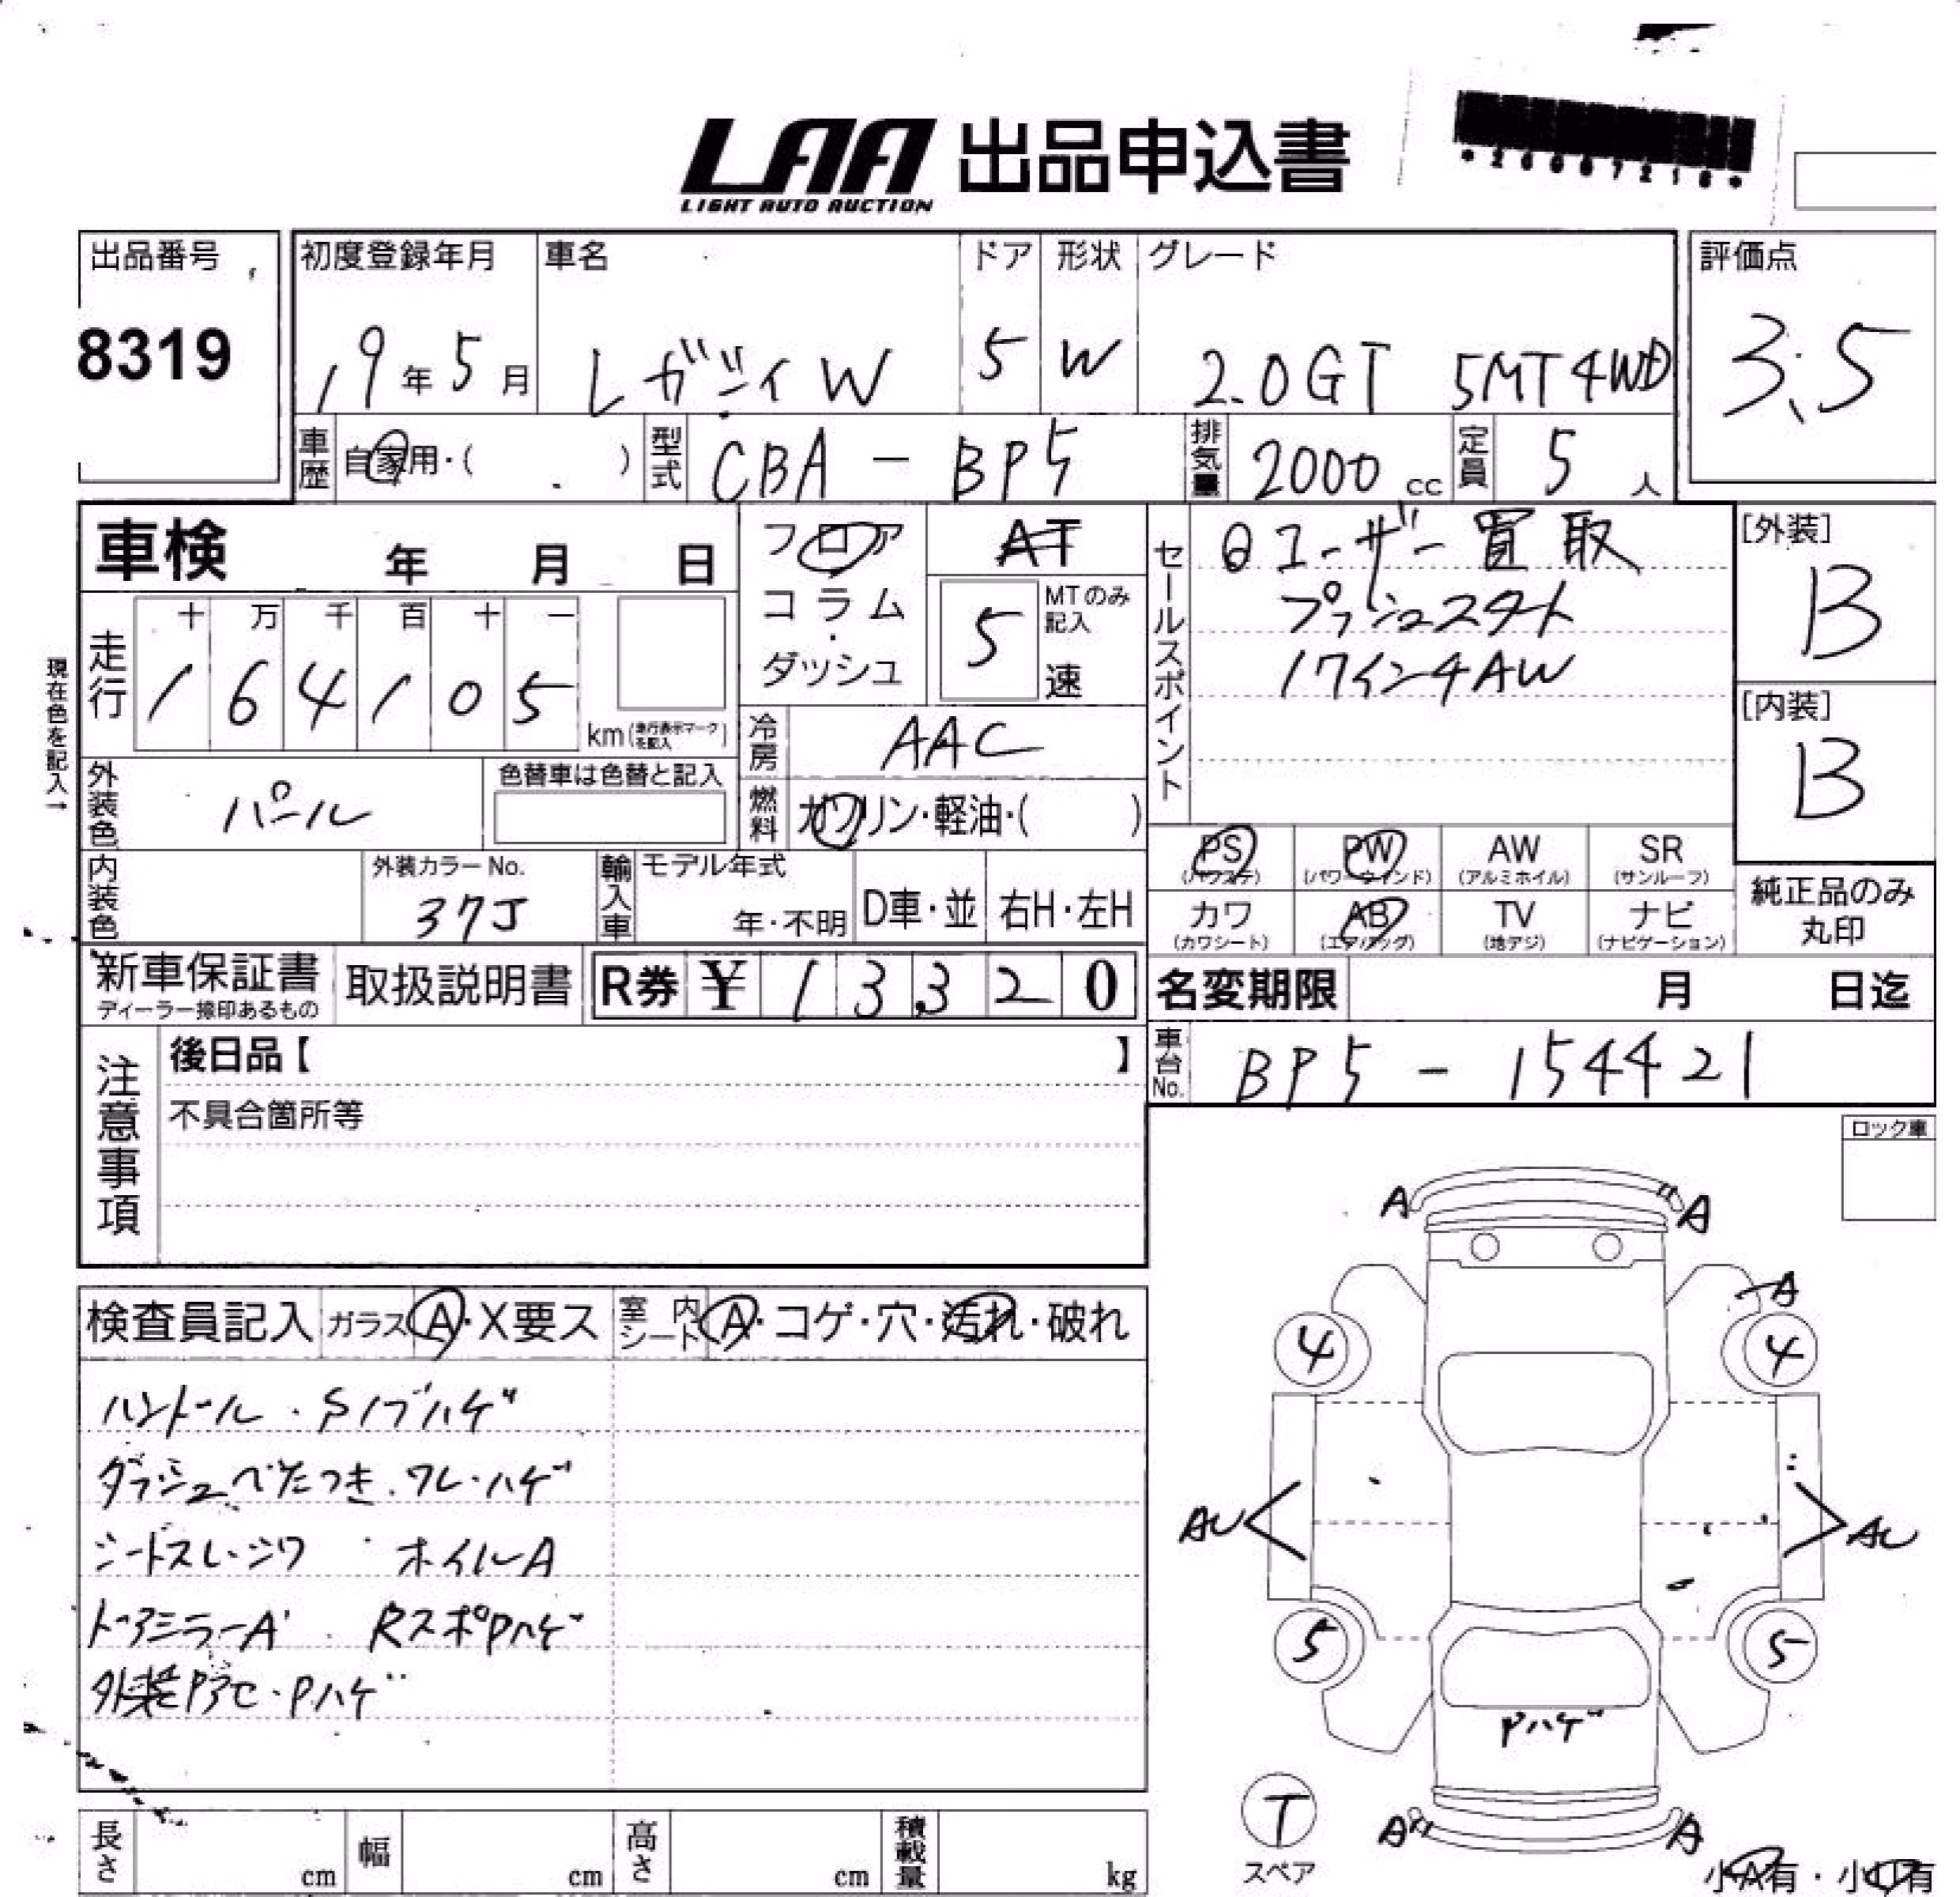 LAA 出品申込書
LIGHT AUTO AUCTION
出品番号
8319
初度登録年月
19年5月
車名
レガシィW
ドア
5
形状
W
グレード
2.0GT 5MT 4WD
評価点
3.5
車歴
自家用・( )
型式
CBA-BP5
排気量
2000 cc
定員
5人
車検 年 月 日
フロア
コラム
・
ダッシュ
AT
5
MTのみ記入
速
セールスポイント
ユーザー買取
プッシュスタート
17インチAW
[外装]
B
[内装]
B
現在色を記入→
走行
十 万 千 百 十 一
1 6 4 1 0 5
km(走行表示マークを記入)
冷房
AAC
外装色
パール
色替車は色替と記入
燃料
ガソリン・軽油・( )
内装色
外装カラーNo.
37J
輸入車
モデル年式
年・不明
D車・並
右H・左H
PS (パワステ)
PW (パワーウインド)
AW (アルミホイル)
SR (サンルーフ)
カワ (カワシート)
AB (エアバッグ)
TV (地デジ)
ナビ (ナビゲーション)
純正品のみ
丸印
新車保証書
ディーラー捺印あるもの
取扱説明書
R券 ¥ 13,320
名変期限 月 日迄
車台No.
BP5-154421
注意事項
後日品【 】
不具合箇所等
ロック車
検査員記入
ガラス A・X要ス
室内シート A・コゲ・穴・汚れ・破れ
ハンドル・Sノブハゲ
ダッシュべたつき・ワレ・ハゲ
シートスレ・シワ ホイルA
ドアミラーA Rスポpハゲ
外装Pアセ・Pハゲ
A A
A
4 4
AU AU
5 5
Pハゲ
T
スペア
A A
小A有・小U有
長さ cm
幅 cm
高さ cm
積載量 kg